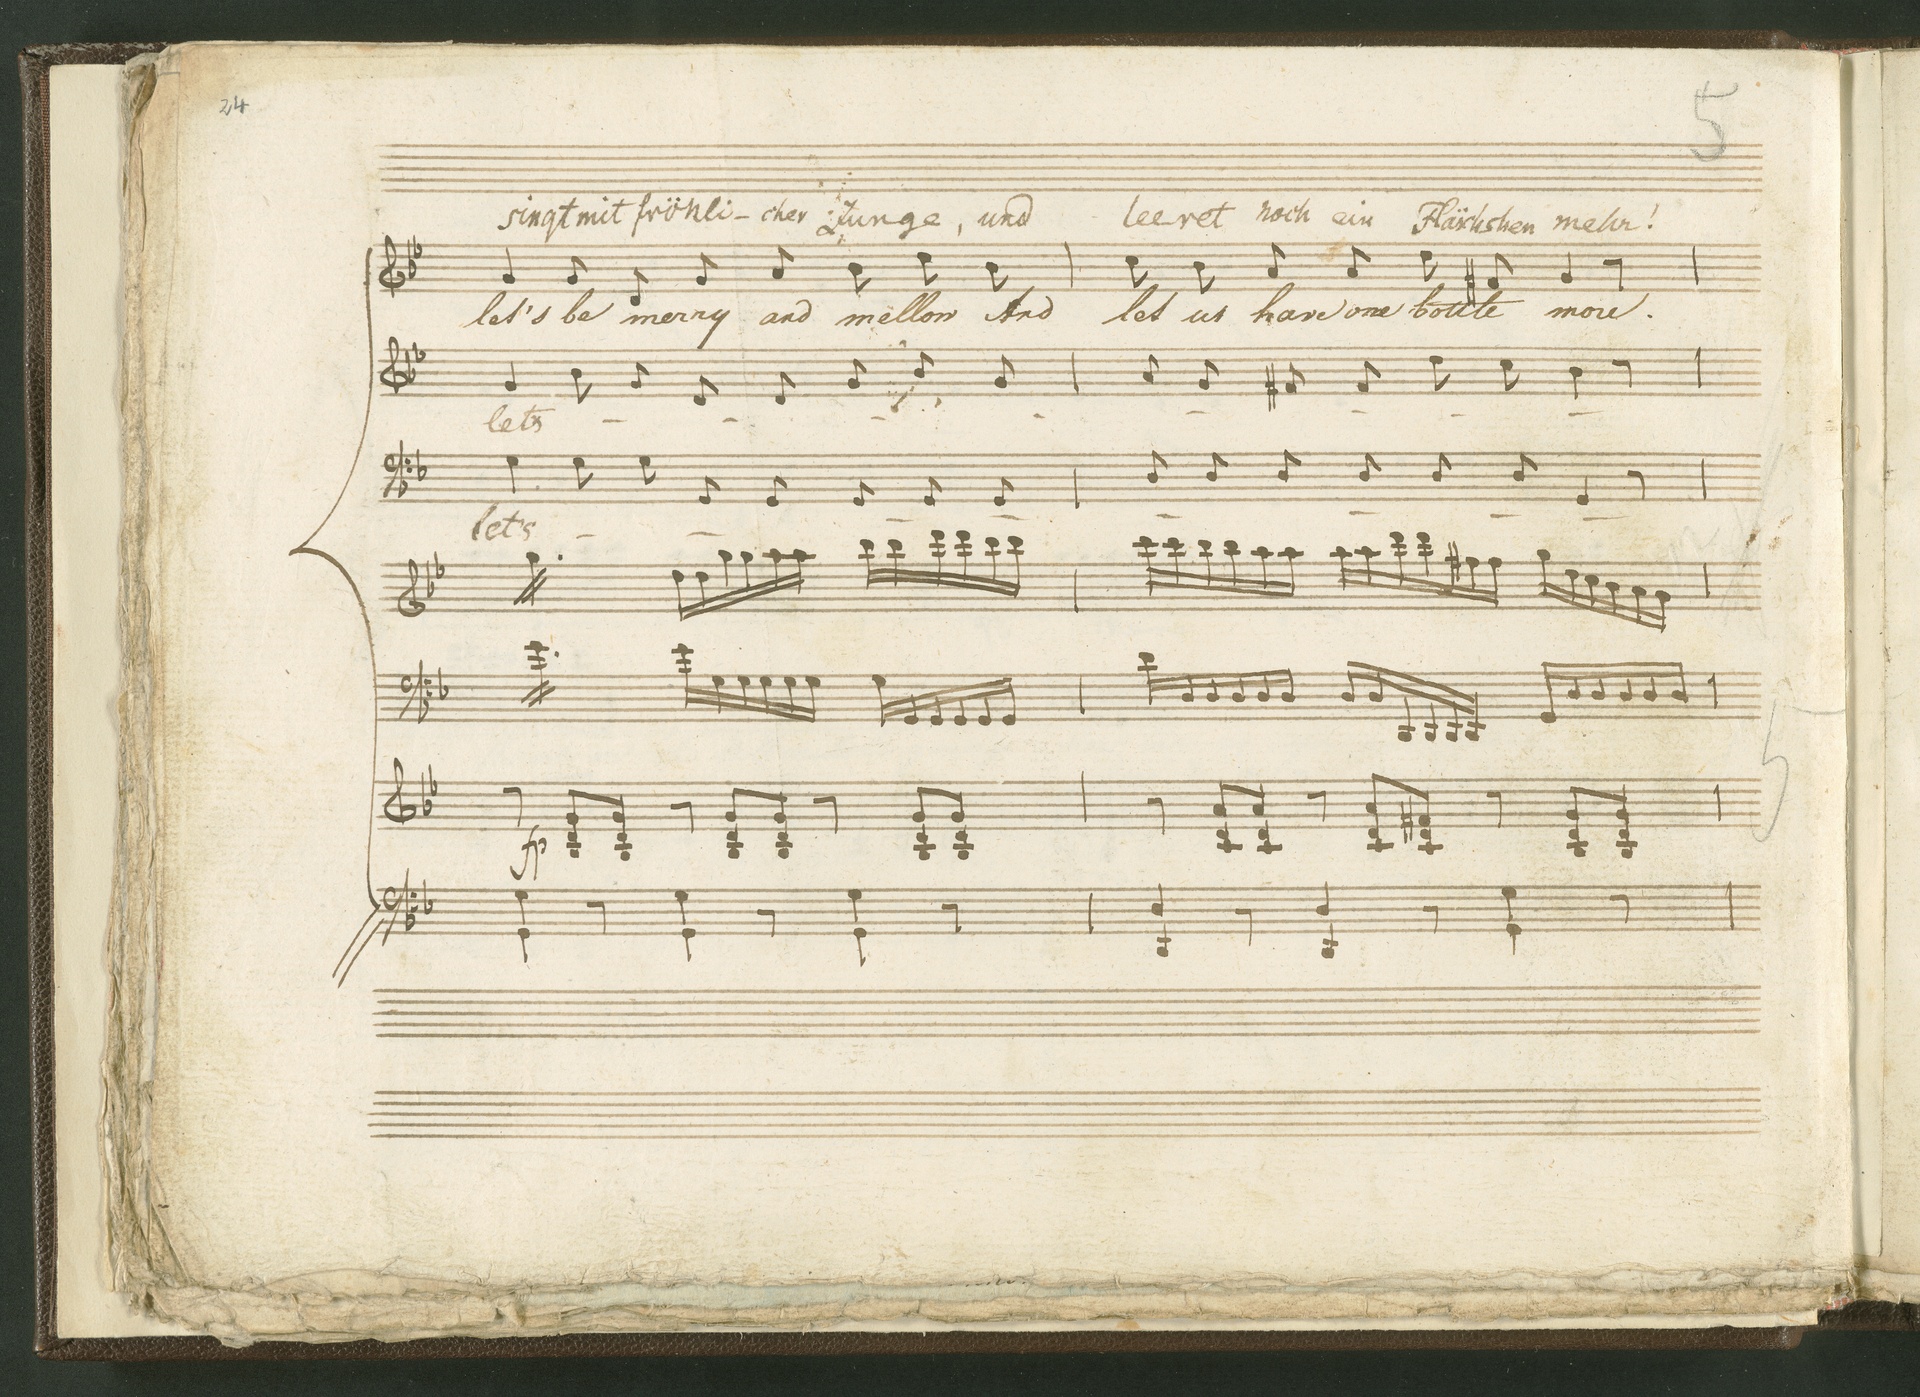 24
5
singt mit fröhli- cher Zunge, und leeret noch ein Fläschchen mehr!
let's be merry and mellow And let us have one bottle more.
lets
let's
fp